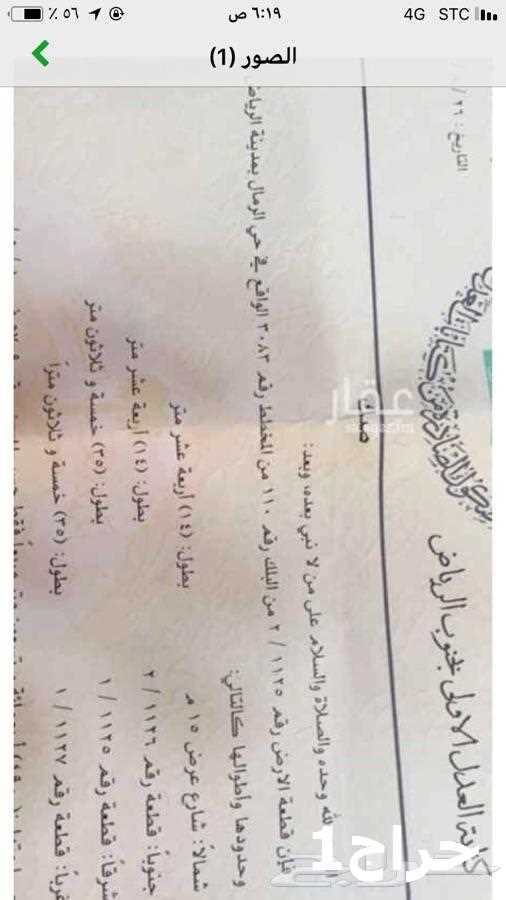 ٦:١٩ ص
٥٦ ٪
4G STC
الصور (1)
التاريخ: ٢٦ /
كتابة العدل الاولى بجنوب الرياض
صك
عقار
حراج1
لله وحده والصلاة والسلام على من لا نبي بعده، وبعد:
فإن قطعة الارض رقم ١١٢٥ / ٢ من البلك رقم ١١٠ من المخطط رقم ٣٠٨٣ الواقع في حي الرمال بمدينة الرياض
وحدودها وأطوالها كالتالي:
شمالاً: شارع عرض ١٥ م بطول: (١٤) أربعة عشر متر
جنوباً: قطعة رقم ١١٢٦ / ٢ بطول: (١٤) أربعة عشر متر
شرقاً: قطعة رقم ١١٢٥ / ١ بطول: (٣٥) خمسة و ثلاثون متر
غرباً: قطعة رقم ١١٢٧ / ١ بطول: (٣٥) خمسة و ثلاثون متراً